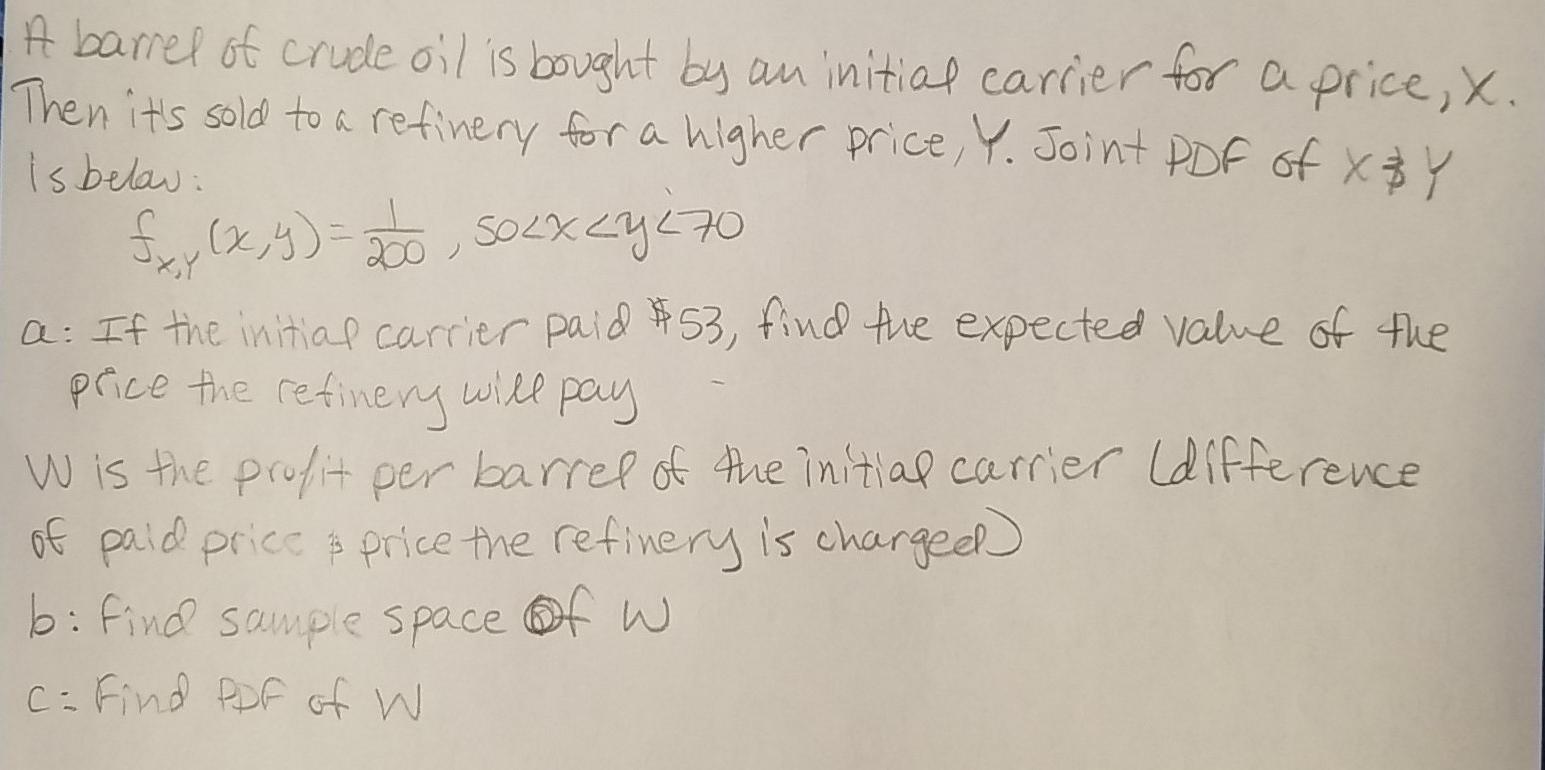 A barrel of crude oil is bought by an initial carrier for a price, X.
Then it's sold to a refinery for a higher price, Y. Joint PDF of X & Y
Is below:
f_{X,Y}(x,y) = 1/200, 50<x<y<70
a: If the initial carrier paid $53, find the expected value of the
price the refinery will pay
W is the profit per barrel of the initial carrier (difference
of paid price & price the refinery is charged)
b: Find sample space of W
c: Find PDF of W